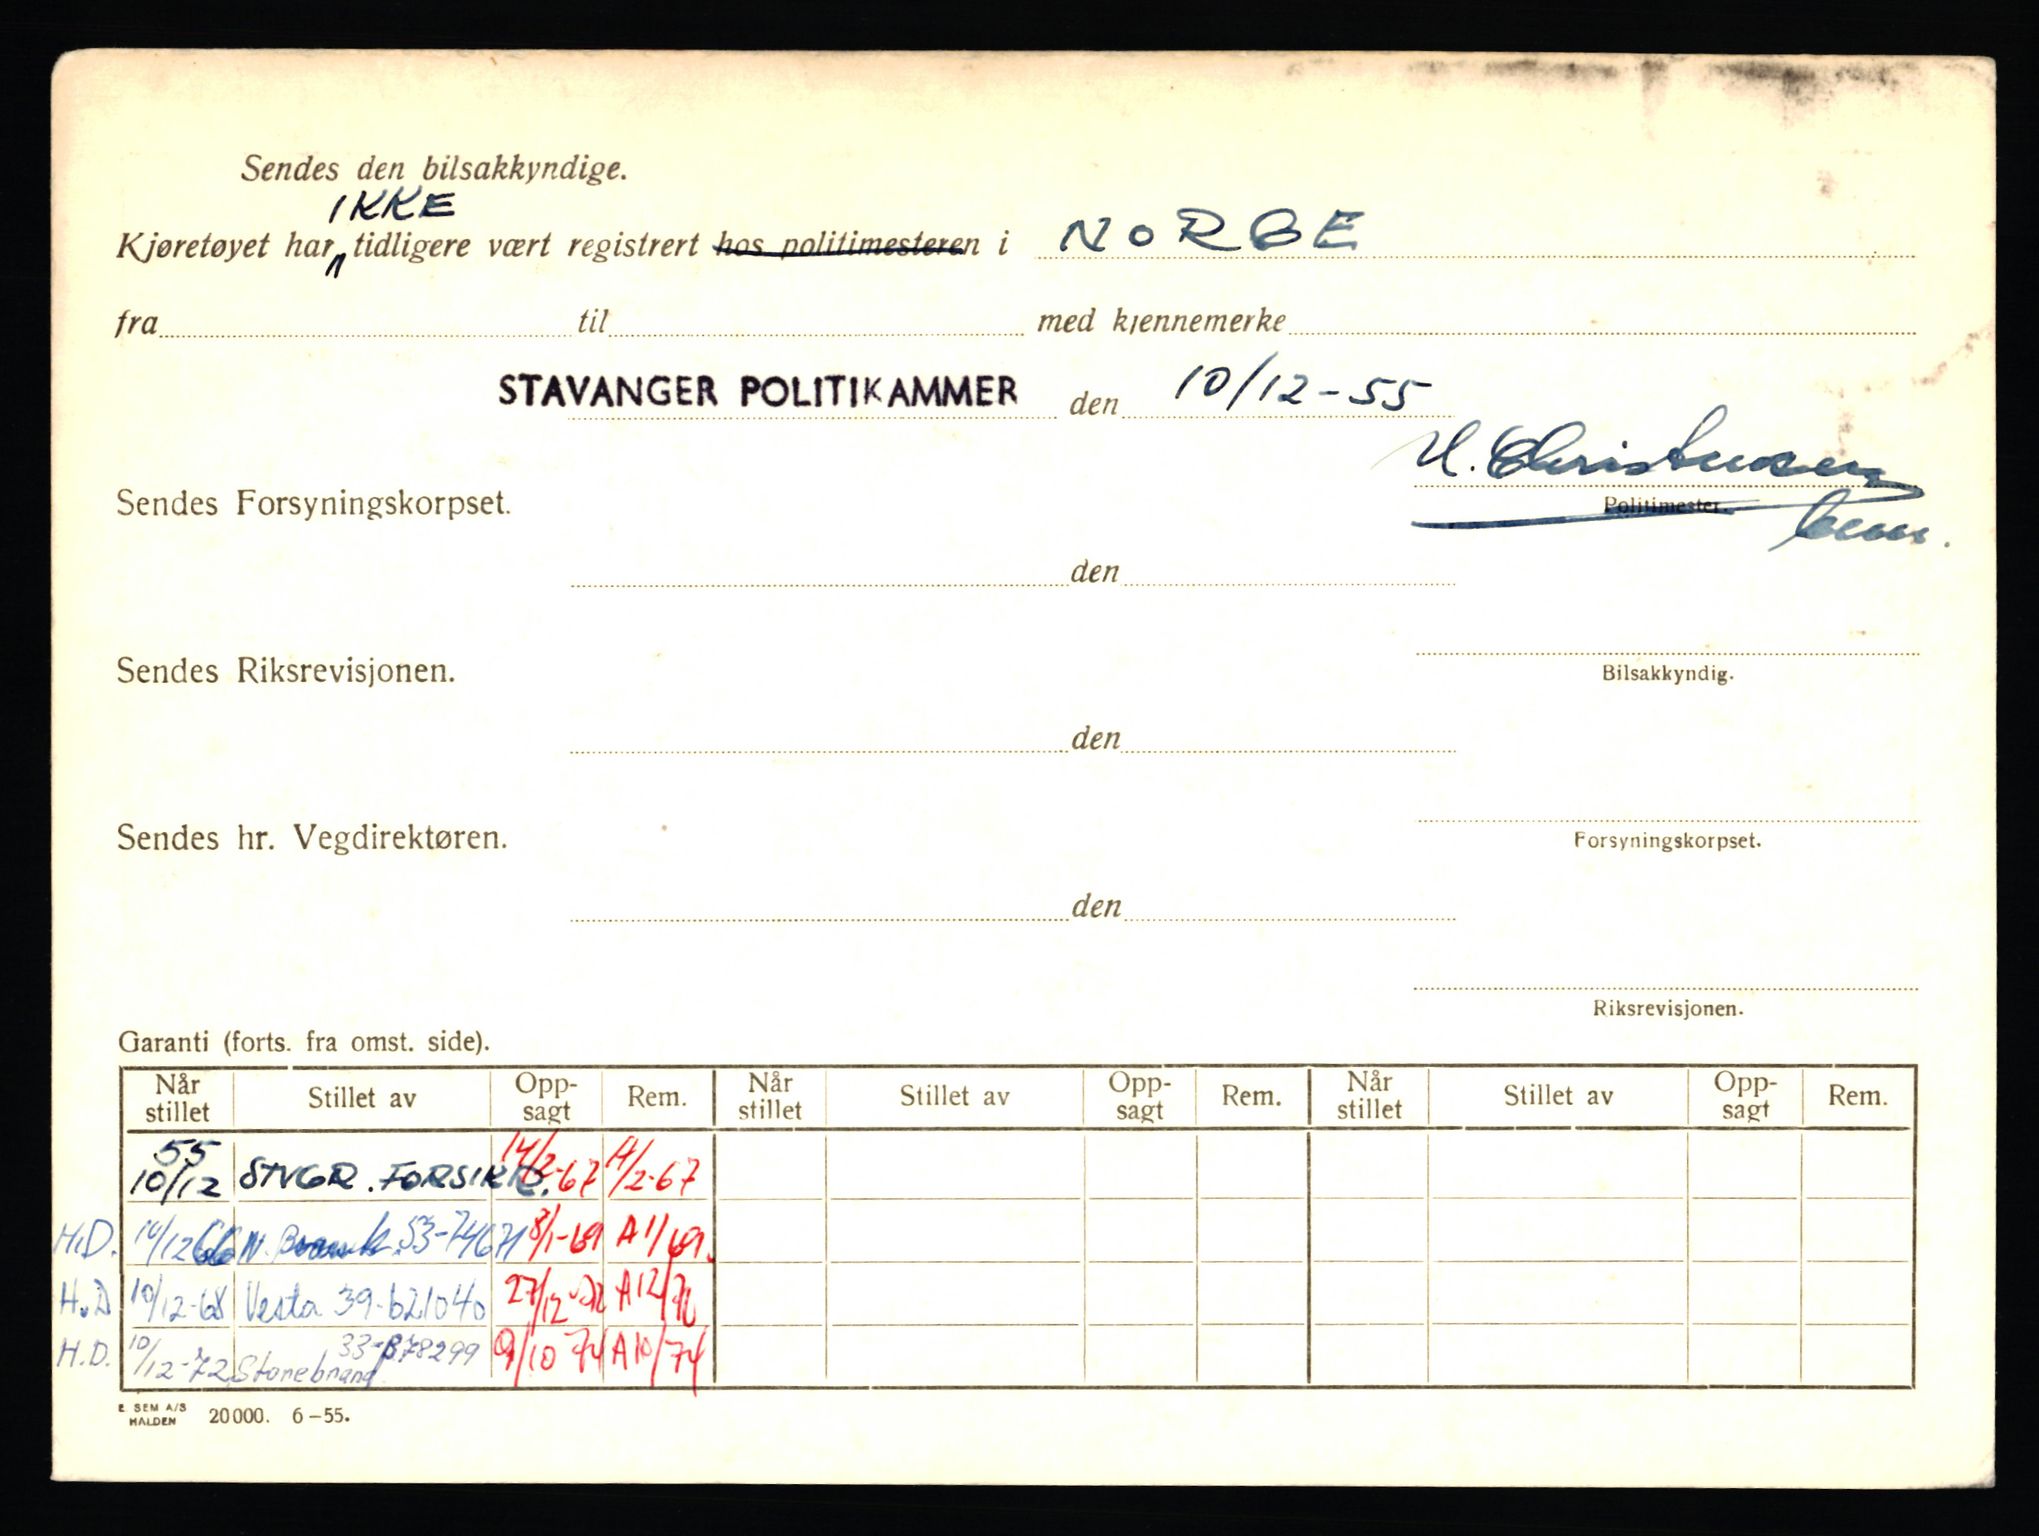 Sendes den bilsakkyndige.
IKKE
Kjøretøyet har tidligere vært registrert hos politimesteren i NORGE
fra til med kjennemerke
STAVANGER POLITIKAMMER den 10/12-55
H. Christensen
Sendes Forsyningskorpset. Politimester.
den
Sendes Riksrevisjonen. Bilsakkyndig.
den
Sendes hr. Vegdirektøren. Forsyningskorpset.
den
Riksrevisjonen.
Garanti (forts. fra omst. side).
Når stillet Stillet av Opp-sagt Rem. Når stillet Stillet av Opp-sagt Rem. Når stillet Stillet av Opp-sagt Rem.
55
10/12 STVGR. FORSIKR. 14/2-67 14/2-67
H.D. 10/12 66 N. Brannk. 53-74671 8/1-69 A 1/69.
H.D 10/12-68 Vesta 39-621040 27/12-72 A 12/72
H.D. 10/12-72 Storebrand 33-878299 9/10 74 A 10/74
E SEM A/S
HALDEN 20000. 6-55.